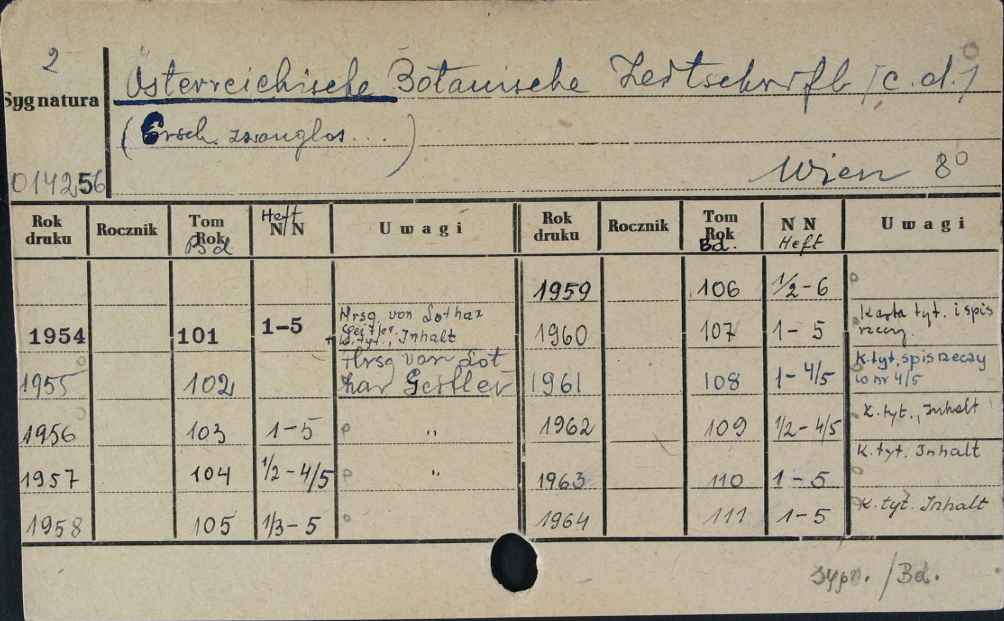 2
Österreichische Botanische Zeitschrift /c.d./
Sygnatura
(Ersch. zwanglos...)
Wien 8°
014256
Rok druku Rocznik Tom Rok Bd Heft NN Uwagi Rok druku Rocznik Tom Rok Bd. NN Heft Uwagi
1959 106 1/2-6
1954 101 1-5 Hrsg von Lothar Geitler, Inhalt 1960 107 1-5 Karta tyt. i spis rzeczy
1955 102 Hrsg von Lothar Geitler 1961 108 1-4/5 K.tyt, spis rzeczy w nr 4/5
1956 103 1-5 " 1962 109 1/2-4/5 K.tyt., Inhalt
1957 104 1/2-4/5 " 1963 110 1-5 K.tyt. Inhalt
1958 105 1/3-5 1964 111 1-5 K.tyt. Inhalt
/Bd.